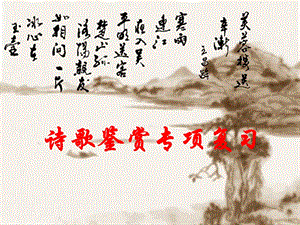 芙蓉楼送
辛渐
王昌龄
寒雨連江
夜入吴
平明送客
楚山孤
洛陽親友
如相问一片
冰心在
玉壶
诗歌鉴赏专项复习